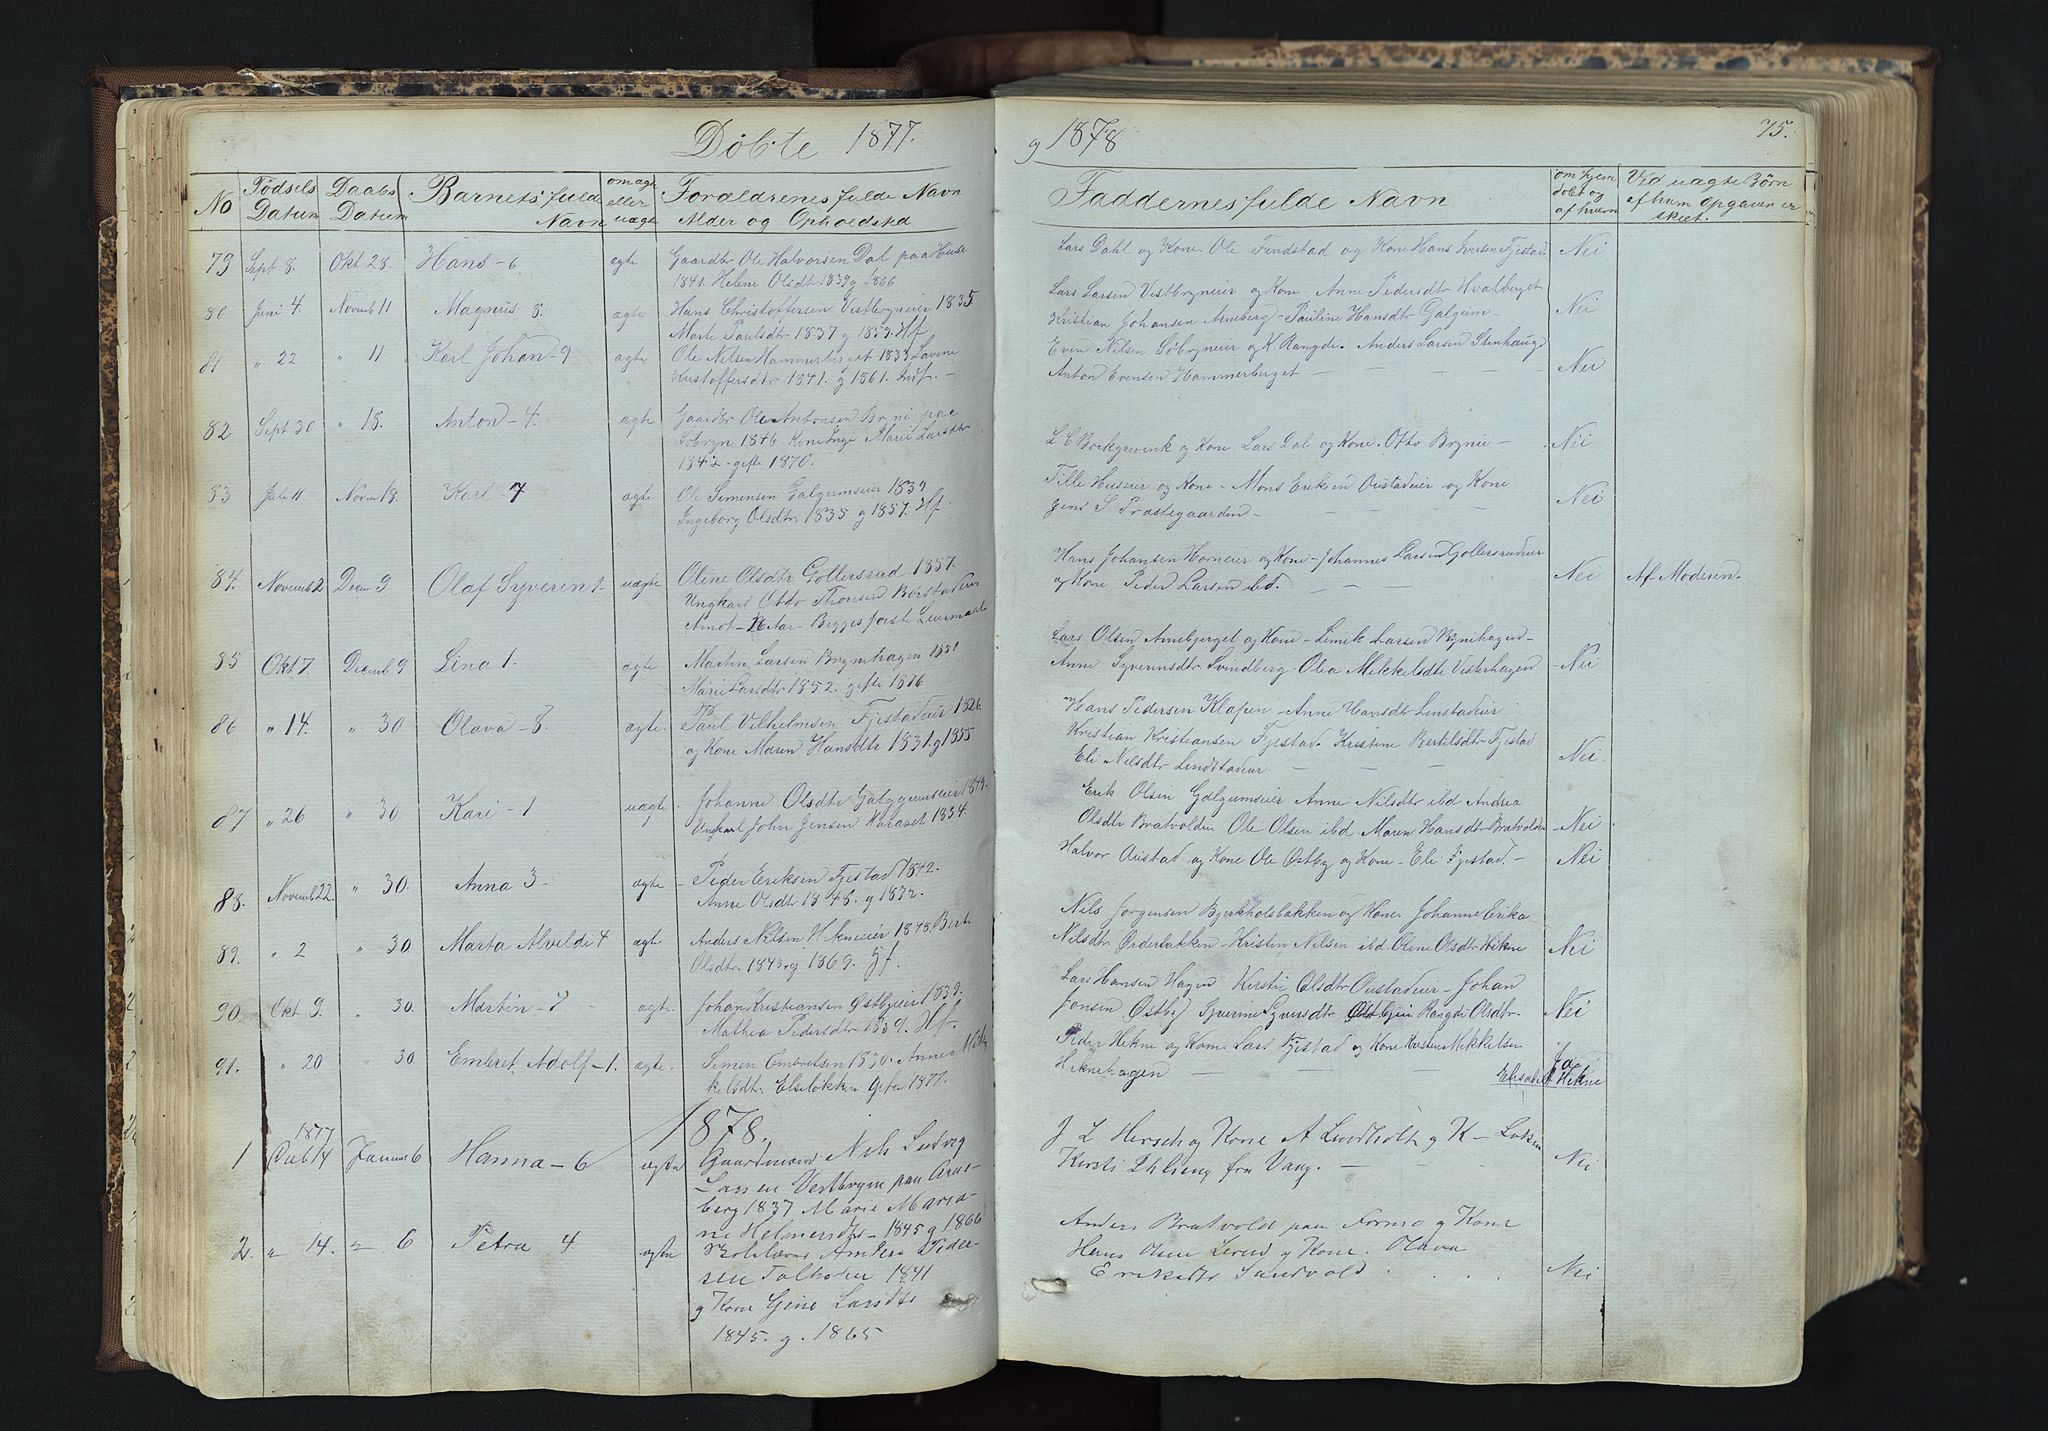 Döbte 1877.
No
Födsels Datum
Daabs Datum
Barnets fulde Navn
om ægte eller uægte
Forældrenes fulde Navn
Alder og Opholdsted
79 Sept 8. Okt 28. Hans - 6 ægte Gaardbr Ole Halvorsen Dal paa Huse
1841. Helene Olsdtr 1839 g 1866
80 Juni 4 Novemb 11 Magnus 8. ægte Hans Christoffersen Vestbryneier 1835
Marte Paulsdtr 1837 g 1859. Hf
81 " 22 " 11 Karl Johan - 9 ægte Ole Nilsen Hammerberget 1833 Lavine
Kristoffersdtr 1841. g 1861. Indf. -
82 Sept 30 " 18. Anton - 4. ægte Gaardbr Ole Antonsen Bryni paa
Söbryn 1846 Kone Inge Marie Larsdtr
1842 - gifte 1870.
83 Juli 11 Novem 18. Karl - 7 ægte Ole Simensen Galgumseier 1839
Ingeborg Olsdtr 1835 g 1857. Hf
84. Novemb 2 Decem 9 Olaf Syverin 1 - uægte Oline Olsdtr Gollersrud 1857.
Ungkarl Otto Thoresen Börstadeier
Amot - 26 Aar - Begges förste Leiermaal
85 Okt 7. Decemb 9 Lina 1. ægte Martin Larsen Brynihagen 1851
Marie Larsdtr 1852. gifte 1876
86 " 14. " 30 Olava - 8. ægte. Paul Vilhelmsen Fjestadeier 1826
og Kone Maren Hansdtr 1831. g 1855
87 " 26 " 30 Kari - 1 uægte - Johanne Olsdtr Galgumseier 1849.
Ungkarl John Jensen Haraset 1854.
88. Novemb 22. " 30. Anna 3 - ægte - Peder Eriksen Fjestad 1842.
Anne Olsdtr 1848. g 1872.
89. " 2 " 30 Marta Alvilde 4 ægte Anders Nilsen Hekneeier 1848. Berte
Olsdtr. 1843 g 1869.
90 Okt 9. " 30. Martin - 7 - ægte. Johan Kristiansen Östbyeier 1839.
Mathea Pedersdtr 1839. Hf.
91. " 20 " 30 Embret Adolf - 1. ægte. Simen Embretsen 1850. Anne Mik-
kelsdtr. Elseløkken Gifte 1877.
1878.
1 1877 Deeb 14 Januar 6 Hanna - 6 ægte Gaardmand Nils Ludvig
Larsen Vestbryn paa Arne-
berg 1837 Marie Maria-
ne Helmersdtr - 1845 g 1866
2. " 14. " 6 Petra 4 ægte Skolelærer Amlien Peder-
sen Tolholen 1841
g Kone Gine Larsdtr
1845. g. 1865
g 1878
75.
Faddernes fulde Navn
om hjem döbt og af hvem
Ved uægte Börn af hvem Opgaven er skeet.
Lars Dahl og Kone Ole Findstad og Kone Hans Iversen Fjestad. Nei
Lars Larsen Vestbryneier og Kone Anne Pedersdtr Hvalberget
Kristian Johansen Arneberg - Pauline Hansdtr Galgum - Nei
Even Nilsen Söbryneier og K. Rangdi. Anders Larsen Stenhauge
Anton Evensen Hammerberget - Nei
L C Borkgrevink og Kone Lars Dal og Kone. Otto Brynie - Nei
Tille Huseier og Kone - Mons Eriksen Oustadeier og Kone
Jens S Præstegaarden - Nei
Hans Johansen Horneier og Kone - Johannes Larsen Gollersrudeier
og Kone Peder Larsen ibd. - Nei Af Moderen.
Lars Olsen Arneberget og Kone - Simek Larsen Brynihagen -
Anne Syverinsdtr. Svindberg. Olea Mikkelsdtr Vesterhagen - Nei
Hans Pedersen Klopen - Anne Hansdtr Linstadeier
Kristian Kristiansen Fjestad. Kristine Bertilsdtr Fjestad
Eli Nilsdtr Lindstadeier - Nei.
Erik Olsen Galgumseier Anne Nilsdtr ibd Andrea
Olsdtr Bratvolden Ole Olsen ibd Maren Hansdtr Bratvolden - Nei
Halvor Austad og Kone Ole Østby og Kone - Eli Fjestad. - Nei
Nils Jorgensen Bjerkholsbakken og Kone Johanne Erika
Nilsdtr Orderbakken - Kristen Nilsen ibd Oline Olsdtr Hekne Nei
Lars Hansen Hagen Kirsti Olsdtr Oustadeier - Johan
Jonsen Østby Syverine Syversdtr Østbyeie Rangdi Olsdtr. Nei
Peder Hekne og Kone Lars Fjestad og Kone Kristen Mikkelsen
Heknehagen - Ja Elisabeth Hekne
J L Hersch og Kone A Lundholt g K - Ludsen
Kirsti Ehlieng fra Vang. - Nei
Anders Bratvold paa Formo g Kone
Hans Olsen Lerud g Kone. Olava
Eriksdtr Sandvold . . . . Nei